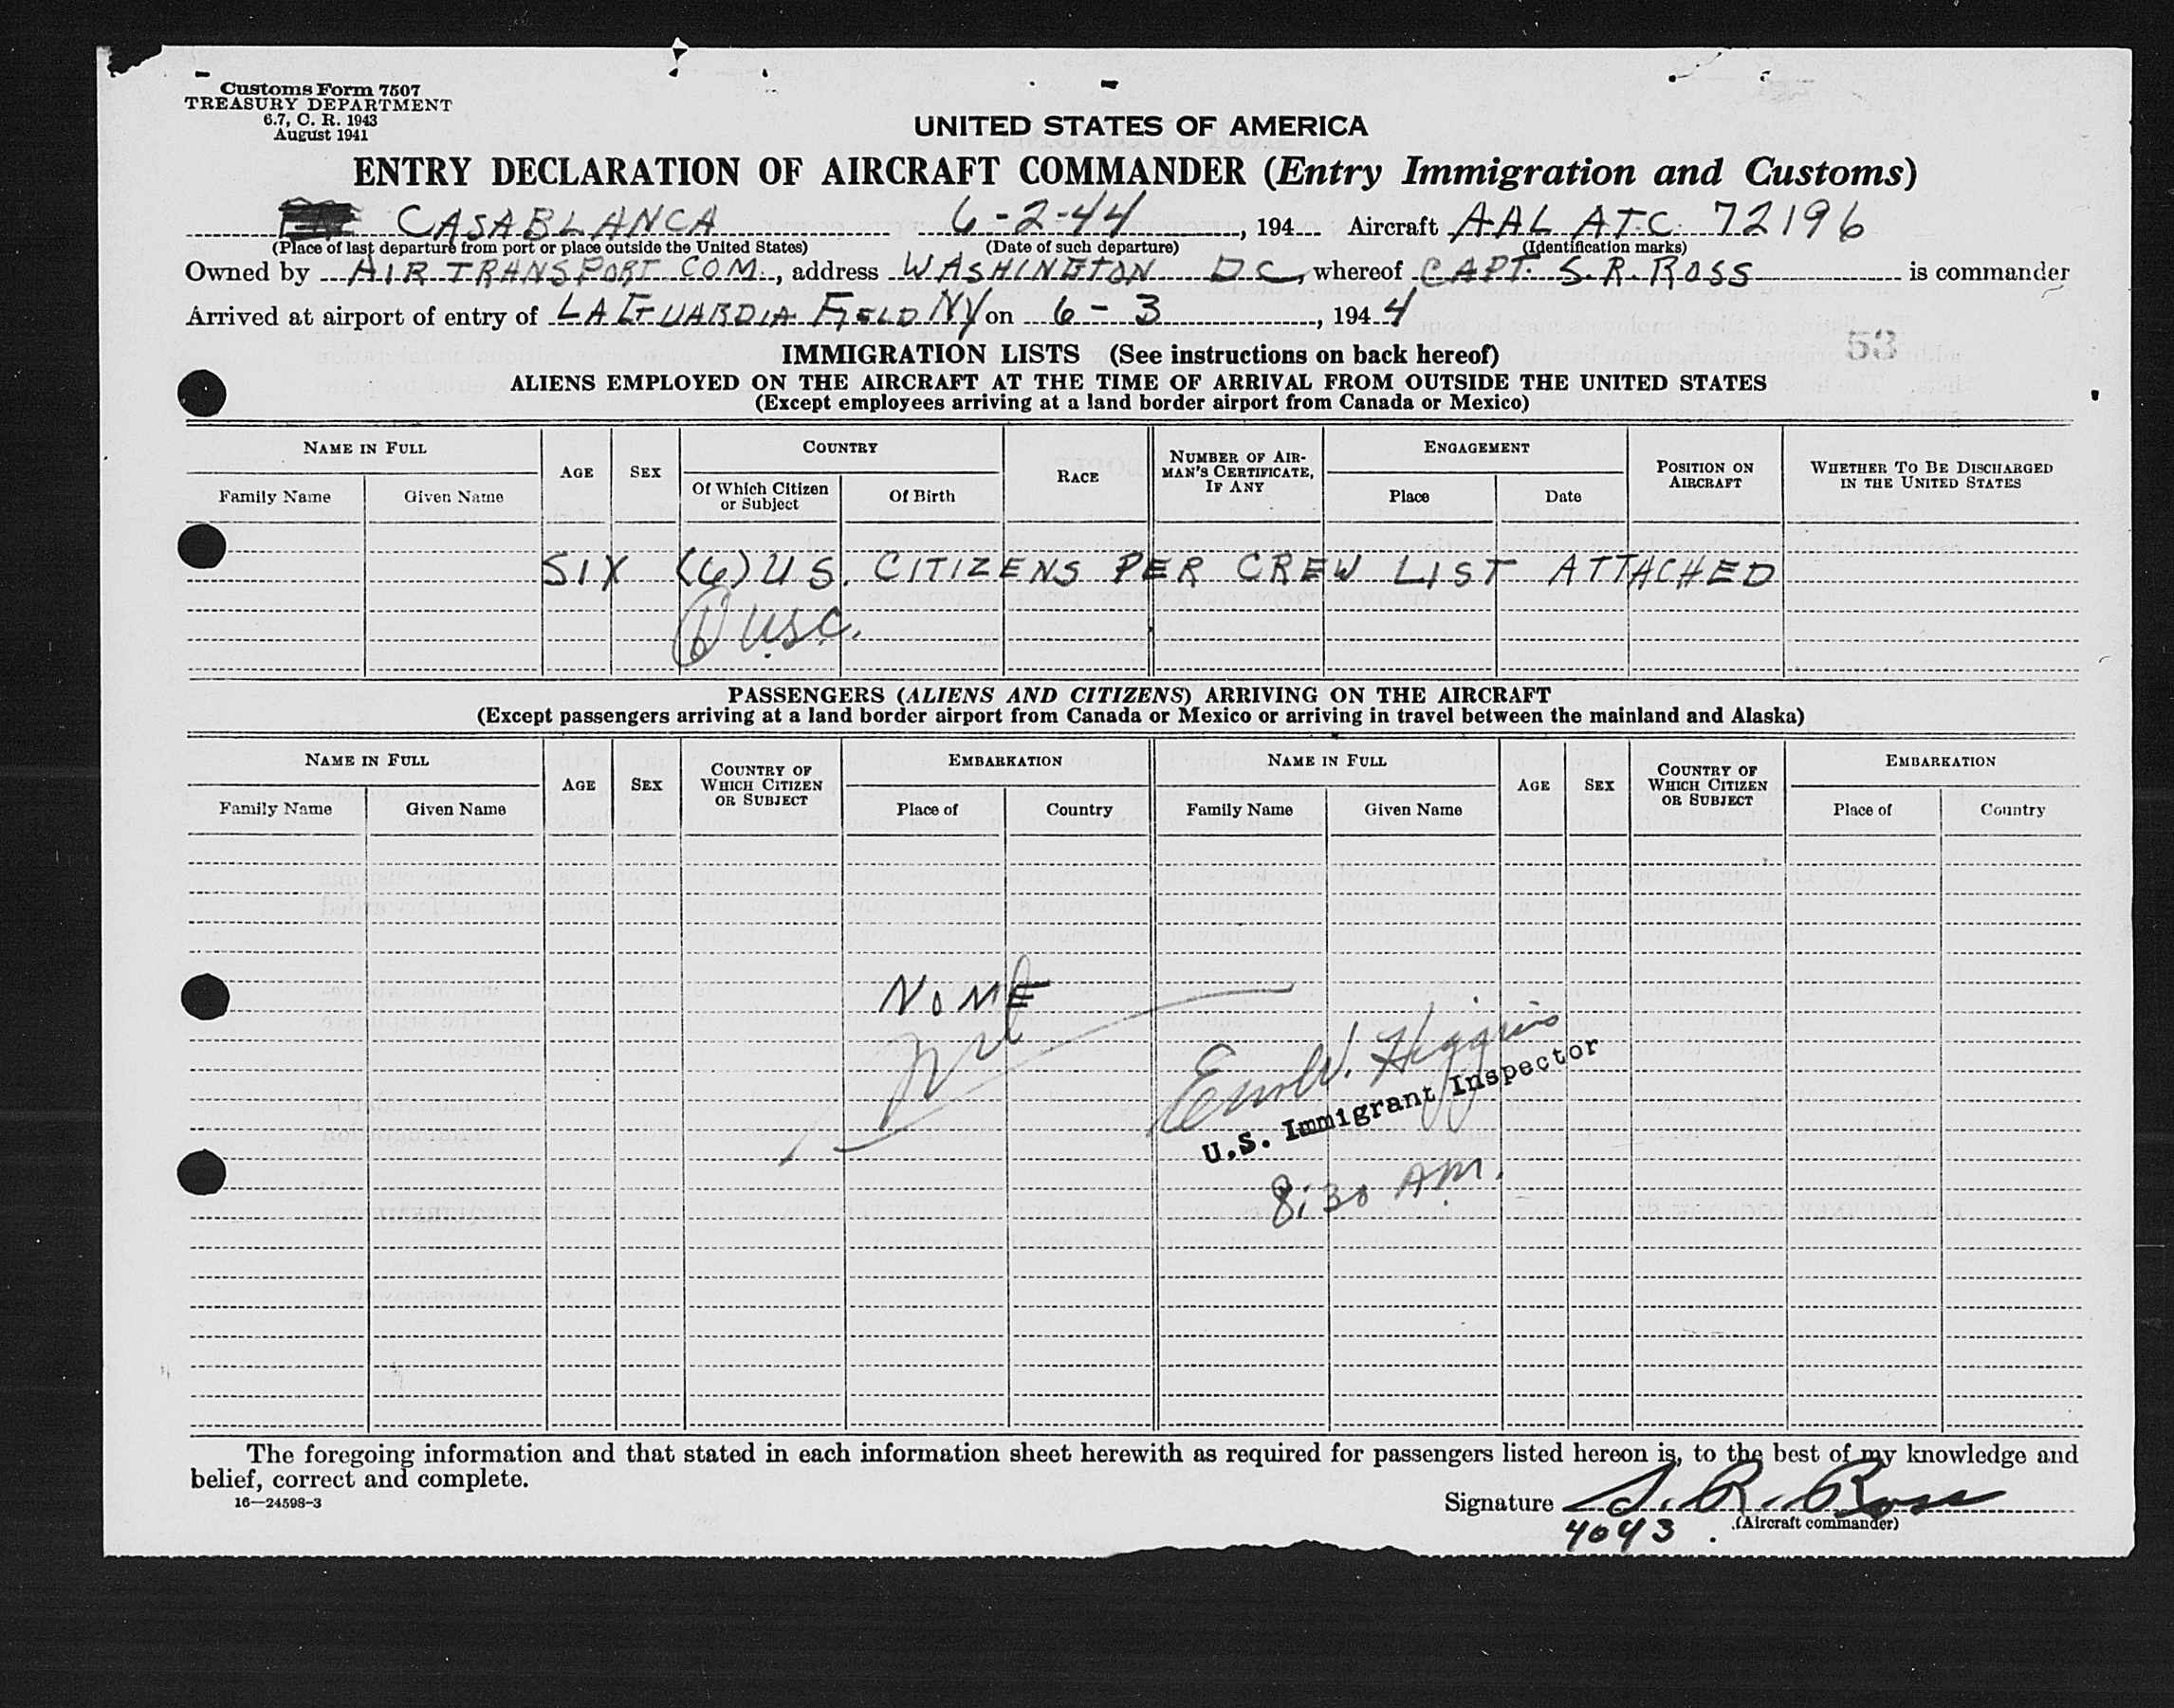 Customs Form 7507
TREASURY DEPARTMENT
6.7, C. R. 1943
August 1941
UNITED STATES OF AMERICA
ENTRY DECLARATION OF AIRCRAFT COMMANDER (Entry Immigration and Customs)
CASABLANCA 6-2-44, 194 Aircraft AAL ATC 72196
(Place of last departure from port or place outside the United States) (Date of such departure) (Identification marks)
Owned by AIR TRANSPORT COM., address WASHINGTON DC, whereof CAPT. S.R. ROSS is commander
Arrived at airport of entry of LA GUARDIA FIELD NY on 6-3, 1944
53
IMMIGRATION LISTS (See instructions on back hereof)
ALIENS EMPLOYED ON THE AIRCRAFT AT THE TIME OF ARRIVAL FROM OUTSIDE THE UNITED STATES
(Except employees arriving at a land border airport from Canada or Mexico)
NAME IN FULL
Family Name Given Name
AGE
SEX
COUNTRY
Of Which Citizen or Subject Of Birth
RACE
NUMBER OF AIRMAN'S CERTIFICATE, IF ANY
ENGAGEMENT
Place Date
POSITION ON AIRCRAFT
WHETHER TO BE DISCHARGED IN THE UNITED STATES
SIX (6) US. CITIZENS PER CREW LIST ATTACHED
(6) USC.
PASSENGERS (ALIENS AND CITIZENS) ARRIVING ON THE AIRCRAFT
(Except passengers arriving at a land border airport from Canada or Mexico or arriving in travel between the mainland and Alaska)
NAME IN FULL
Family Name Given Name
AGE
SEX
COUNTRY OF WHICH CITIZEN OR SUBJECT
EMBARKATION
Place of Country
NAME IN FULL
Family Name Given Name
AGE
SEX
COUNTRY OF WHICH CITIZEN OR SUBJECT
EMBARKATION
Place of Country
NONE
Nil
W. Higgins
U.S. Immigrant Inspector
8:30 AM.
The foregoing information and that stated in each information sheet herewith as required for passengers listed hereon is, to the best of my knowledge and
belief, correct and complete.
16—24598-3
Signature S. R. Ross
(Aircraft commander)
4043